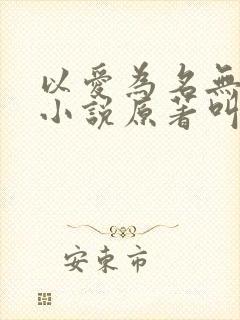 以愛為名無
小說原著叫
安東市